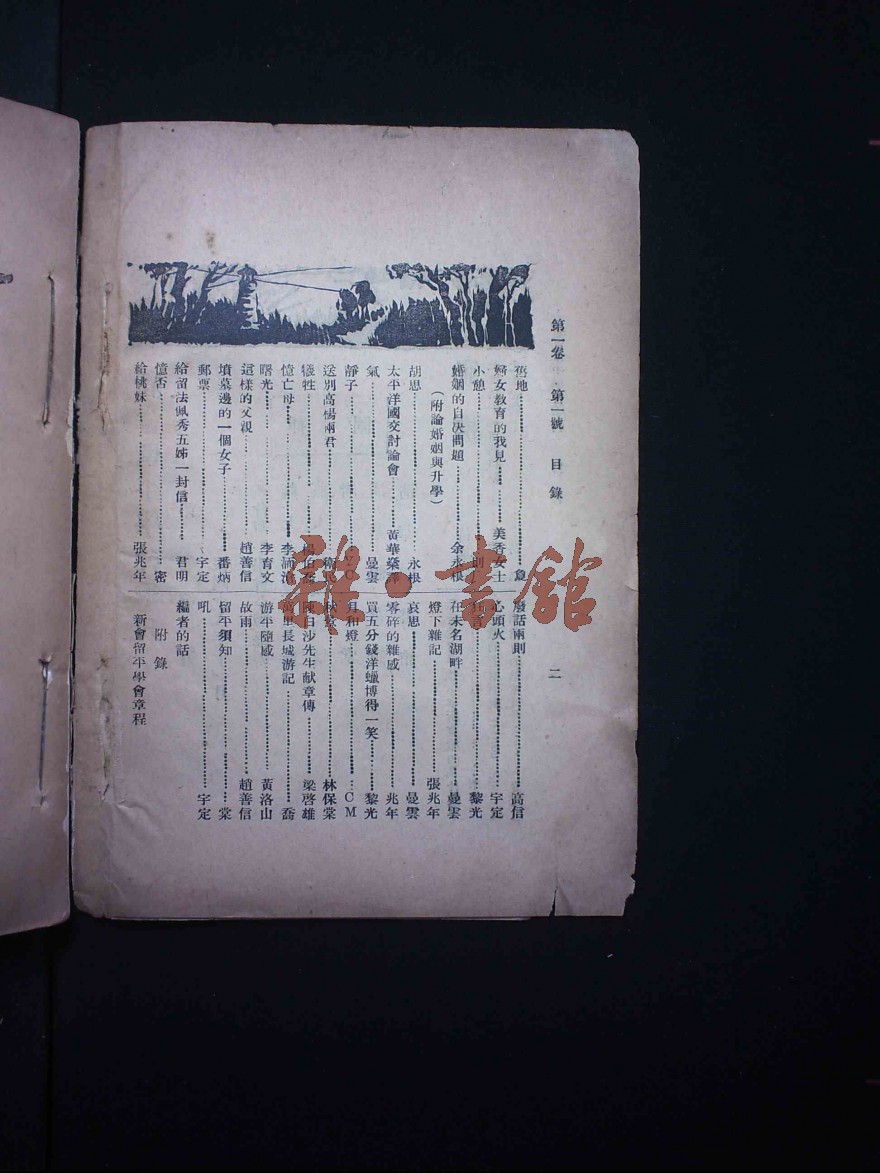 第一卷 第一號 目錄 二
舊地……………………
婦女教育的我見……美香女士
小憩……………………則
婚姻的自決問題……………余永根
(附論婚姻與升學)
胡思……………………永根
太平洋國交討論會……黃華燊譯
氣……………………曼雲
靜子……………………
送別高楊兩君……………
犧牲……………………楊伯
憶亡母……………………李沛
曙光……………………李育文
這樣的父親……………趙善信
墳墓邊的一個女子……番炳
郵票……………………宇定
給留法佩秀五姊一封信……君明
憶否……………………密
給桃妹……………………張兆年
廢話兩則……………………高信
心頭火……………………宇定
狂言……………………黎光
在未名湖畔……………曼雲
燈下雜記……………………張兆年
哀思……………………曼雲
零碎的雜感……………兆年
買五分錢洋蠟博得一笑……黎光
月和燈……………………CM
林保棠
陳白沙先生献章傳……梁啓雄
萬里長城游記……………喬
游平隨感……………………黃洛山
故雨……………………趙善信
留平須知……………………棠
吼……………………宇定
編者的話
附錄
新會留平學會章程
雜·書館